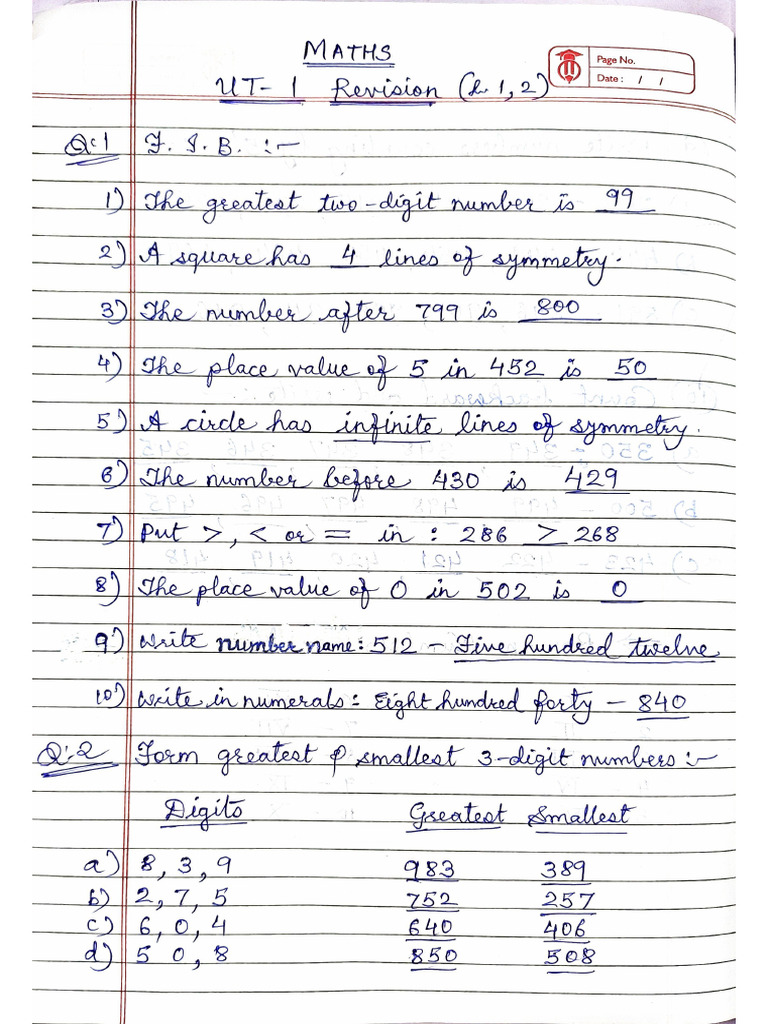 MATHS
UT- 1 Revision (Ch. 1, 2)
Page No.
Date : / /
Q:1 F. I. B. :-
1) The greatest two-digit number is 99
2) A square has 4 lines of symmetry.
3) The number after 799 is 800
4) The place value of 5 in 452 is 50
5) A circle has infinite lines of symmetry.
6) The number before 430 is 429
7) Put >, < or = in : 286 > 268
8) The place value of 0 in 502 is 0
9) Write number name: 512 - Five hundred twelve
10) Write in numerals: Eight hundred forty - 840
Q:2 Form greatest & smallest 3-digit numbers :-
Digits Greatest Smallest
a) 8, 3, 9 983 389
b) 2, 7, 5 752 257
c) 6, 0, 4 640 406
d) 5 0, 8 850 508